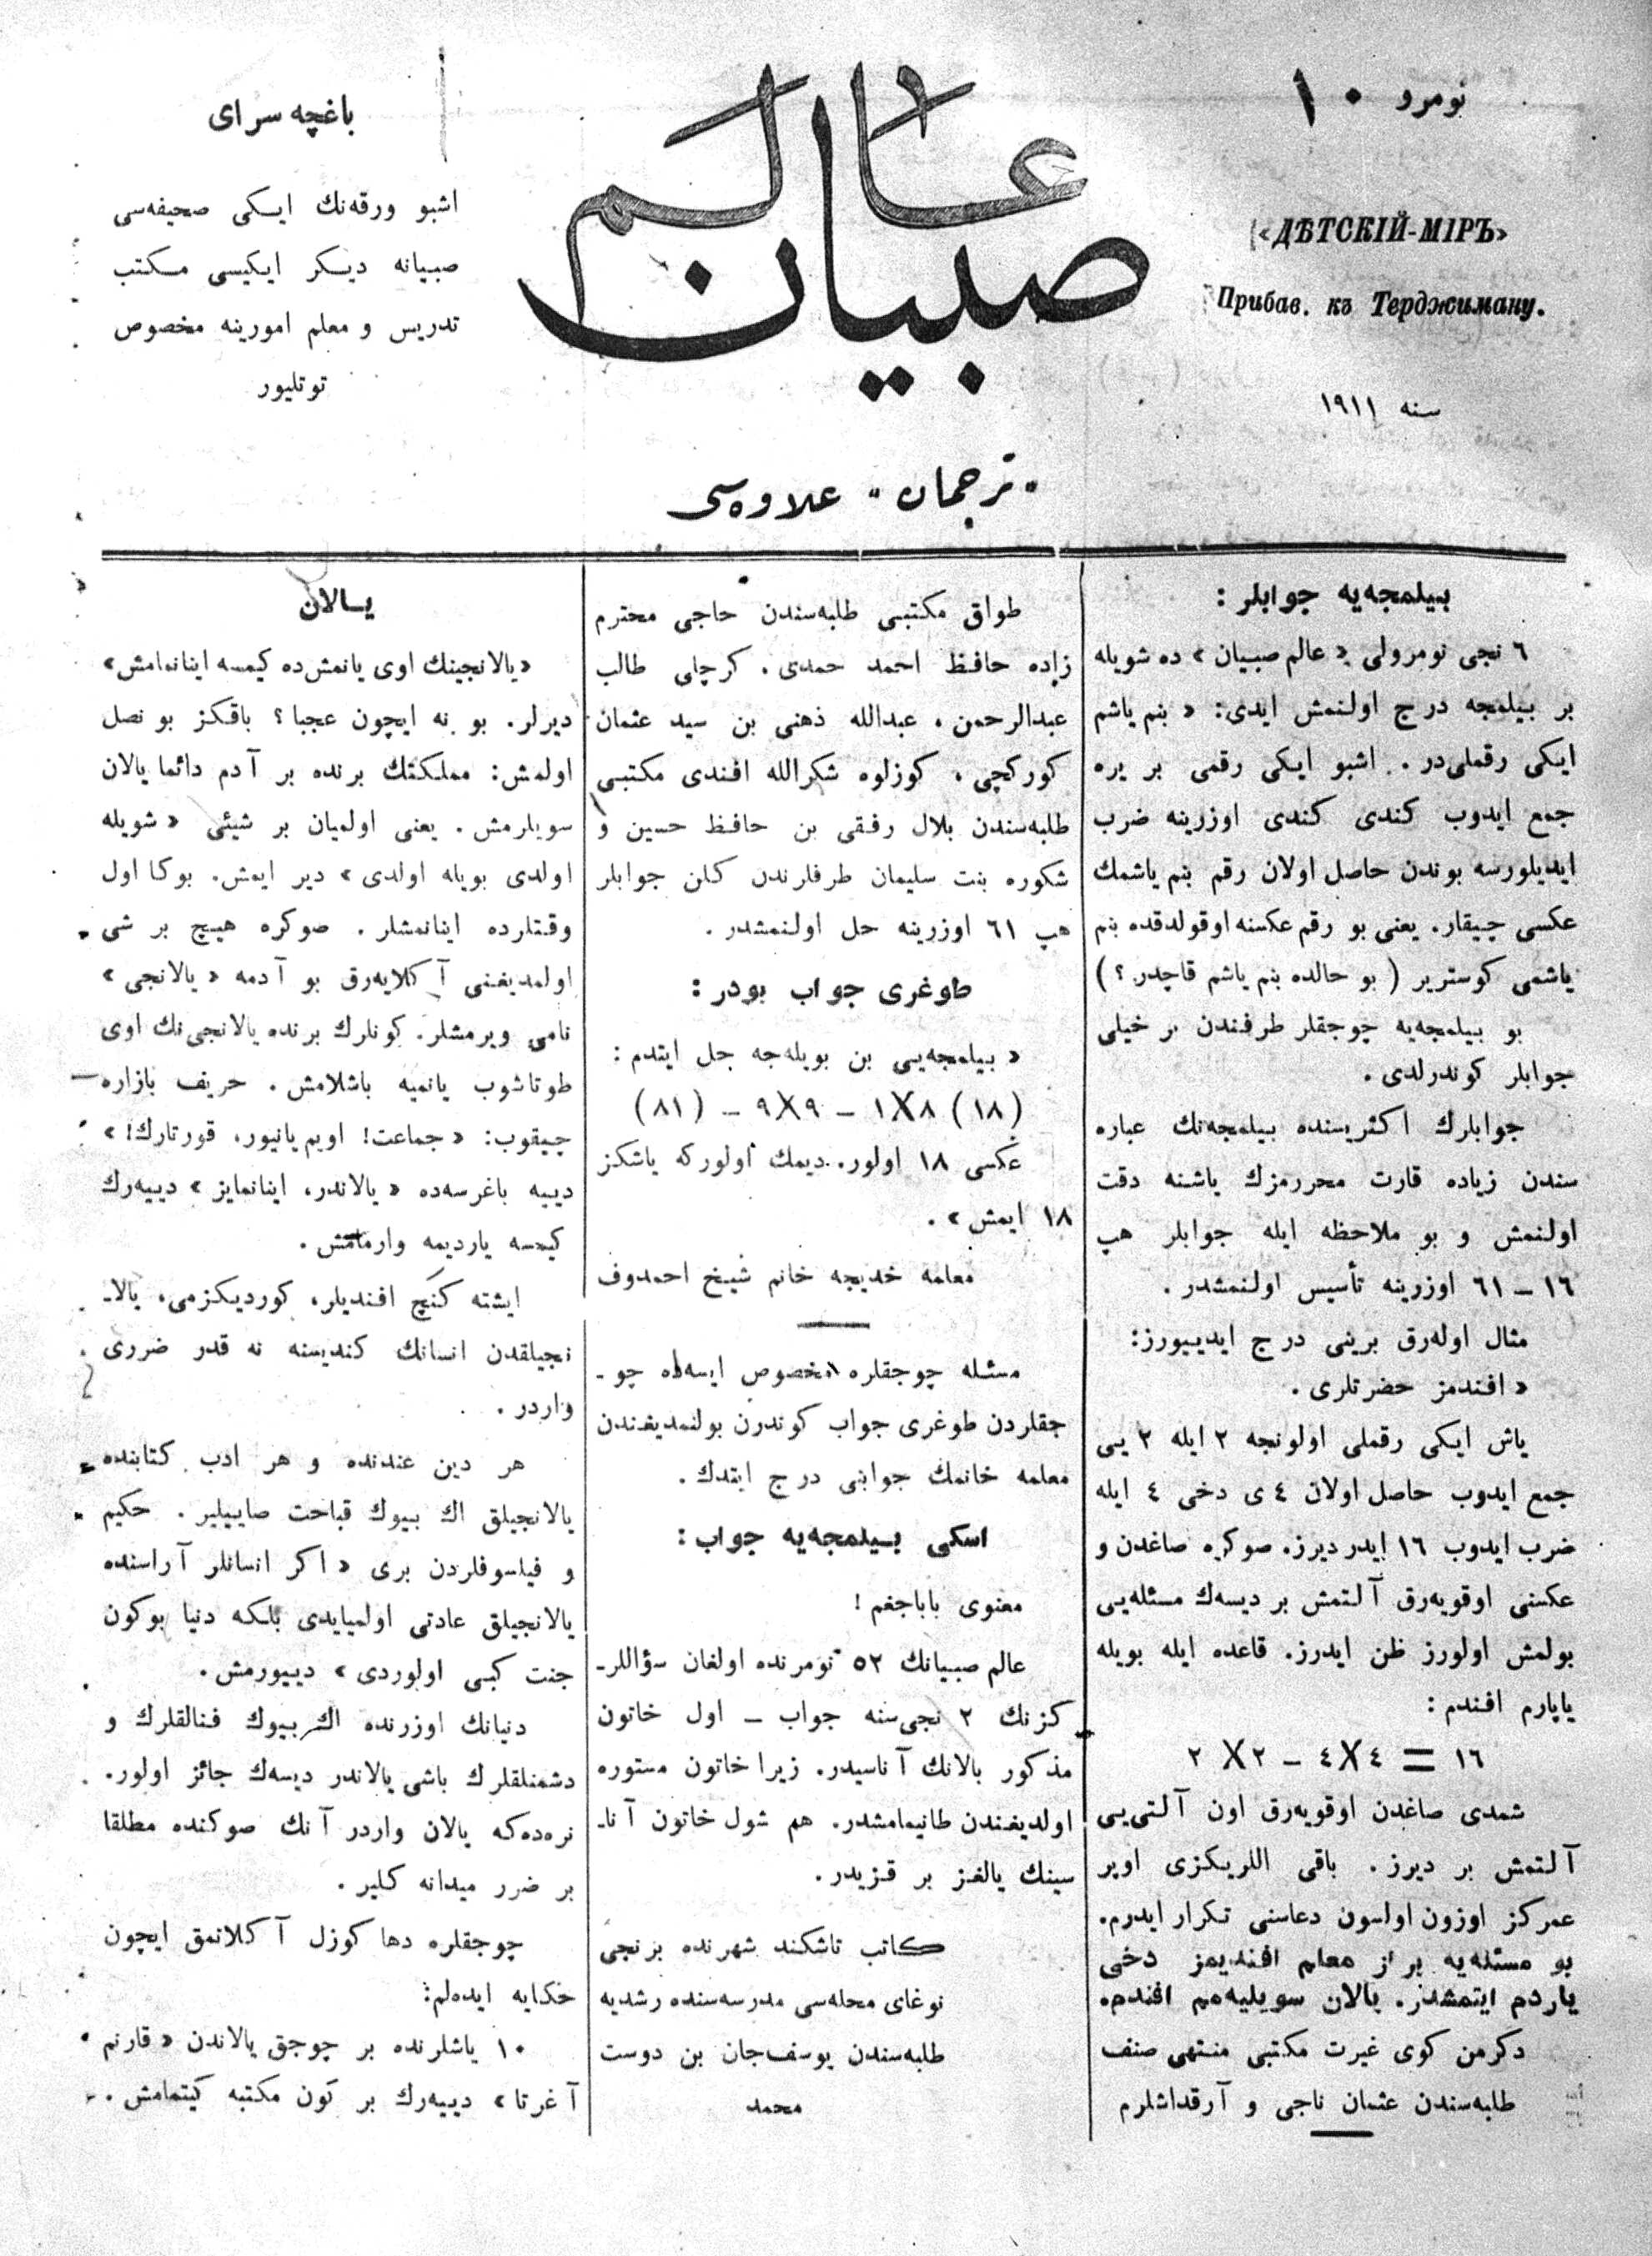 نومرو ١٠
«ДѢТСКІЙ-МІРЪ»
Прибав. къ Терджиману.
سنه ١٩١١
عالم صبيان
«ترجمان» علاوه‌سی
باغچه سرای
اشبو ورقه‌نك ایکی صحیفه‌سی
صبیانه دیکر ایکیسی مکتب
تدریس و معلم امورینه مخصوص
توتلیور
بیلمجه‌یه جوابلر :
٦ نجی نومرولی «عالم صبیان» ده شویله
بر بیلمجه درج اولنمش ایدی: «بنم یاشم
ایکی رقملی‌در. اشبو ایکی رقمی بر یره
جمع ایدوب کندی کندی اوزرینه ضرب
ایدیلورسه بوندن حاصل اولان رقم بنم یاشمك
عکسی چیقار. یعنی بو رقم عکسنه اوقولدقده بنم
یاشمی کوستریر (بو حالده بنم یاشم قاچدر؟)
بو بیلمجه‌یه چوجقلر طرفندن بر خیلی
جوابلر کوندرلدی.
جوابلرك اکثریسنده بیلمجه‌نك عباره
سندن زیاده قارت محررمزك یاشنه دقت
اولنمش و بو ملاحظه ایله جوابلر هپ
١٦ – ٦١ اوزرینه تأسیس اولنمشدر.
مثال اوله‌رق برینی درج ایدییورز:
«افندمز حضرتلری.
یاش ایکی رقملی اولونجه ٢ ایله ٢ یی
جمع ایدوب حاصل اولان ٤ ی دخی ٤ ایله
ضرب ایدوب ١٦ ایدر دیرز. صوکره صاغدن و
عکسنی اوقویه‌رق آلتمش بر دیسه‌ك مسئله‌یی
بولمش اولورز ظن ایدرز. قاعده ایله بویله
یاپارم افندم :
١٦ = ٤X٤ – ٢X٢
شمدی صاغدن اوقویه‌رق اون آلتی‌یی
آلتمش بر دیرز. باقی اللریکزی اوپر
عمرکز اوزون اولسون دعاسنی تکرار ایدرم.
بو مسئله‌یه براز معلم افندیمز دخی
یاردم ایتمشدر. یالان سویلیه‌مم افندم.
دکرمن کوی غیرت مکتبی منتهی صنف
طلبه‌سندن عثمان ناجی و آرقداشلرم
طواق مکتبی طلبه‌سندن حاجی محترم
زاده حافظ احمد حمدی. کرچلی طالب
عبدالرحمن، عبدالله ذهنی بن سید عثمان
کورکچی، کوزلوه شکرالله افندی مکتبی
طلبه‌سندن بلال رفقی بن حافظ حسین و
شکوره بنت سلیمان طرفلرندن کلن جوابلر
هپ ٦١ اوزرینه حل اولنمشدر.
طوغری جواب بودر :
«بیلمجه‌یی بن بویله‌جه حل ایتدم :
(١٨) ٨X١ – ٩X٩ – (٨١)
عکسی ١٨ اولور. دیمك اولورکه یاشکز
١٨ ایمش».
معلمه خدیجه خانم شیخ احمدوف
مسئله چوجقلره مخصوص ایسه‌ده چو-
جقلردن طوغری جواب کوندرن بولنمدیغندن
معلمه خانمك جوابنی درج ایتدك.
اسکی بیلمجه‌یه جواب :
معنوی باباجغم !
عالم صبیانك ٥٢ نومرنده اولغان سؤاللر-
کزنك ٢ نجی‌سنه جواب – اول خاتون
مذکور بالانك آناسیدر. زیرا خاتون مستوره
اولدیغندن طانیمامشدر. هم شول خاتون آنا-
سینك یالغز بر قزیدر.
کاتب تاشکند شهرنده برنجی
نوغای محله‌سی مدرسه‌سنده رشدیه
طلبه‌سندن یوسف‌جان بن دوست
محمد
یالان
«یالانجینك اوی یانمش‌ده کیمسه اینانمامش»
دیرلر. بو نه ایچون عجبا؟ باقکز بو نصل
اولمش: مملکتك برنده بر آدم دائما یالان
سویلرمش. یعنی اولمیان بر شیئی «شویله
اولدی بویله اولدی» دیر ایمش. بوکا اول
وقتلرده اینانمشلر. صوکره هیچ بر شی
اولمدیغنی آکلایه‌رق بو آدمه «یالانجی»
نامی ویرمشلر. کونلرك برنده یالانجی‌نك اوی
طوتاشوب یانمیه باشلامش. حریف بازاره
چیقوب: «جماعت! اویم یانیور، قورتارك!»
دییه باغرسه‌ده «یالاندر، اینانمایز» دییه‌رك
کیمسه یاردیمه وارمامش.
ایشته کنج افندیلر، کوردیکزمی، یالا-
نجیلقدن انسانك کندیسنه نه قدر ضرری
واردر.
هر دین عندنده و هر ادب کتابنده
یالانجیلق اك بیوك قباحت صاییلیر. حکیم
و فیلسوفلردن بری «اکر انسانلر آراسنده
یالانجیلق عادتی اولمیایدی بلکه دنیا بوکون
جنت کبی اولوردی» دییورمش.
دنیانك اوزرنده اك بیوك فنالقلرك و
دشمنلقلرك باشی یالاندر دیسه‌ك جائز اولور.
نره‌ده‌که یالان واردر آنك صوکنده مطلقا
بر ضرر میدانه کلیر.
چوجقلره دها کوزل آکلاتمق ایچون
حکایه ایده‌لم:
١٠ یاشلرنده بر چوجق یالاندن «قارنم
آغرتا» دییه‌رك بر کون مکتبه کیتمامش.